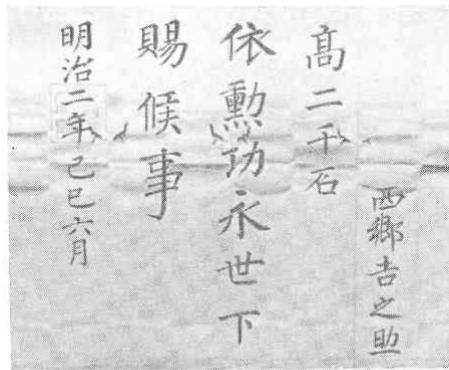 西郷吉之助
高二千石
依勲功永世下
賜候事
明治二年己巳六月